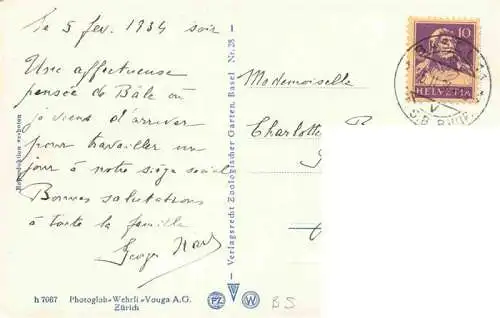 le 5 fev. 1934 soir
Une affectueuse
pensée de Bâle où
je viens d'arriver
pour travailler un
jour à notre siège social
Bonnes salutations
à toute la famille
Georges
Reproduktion verboten
h 7067 Photoglob-Wehrli-Vouga A.G.
Zürich
Verlagsrecht Zoologischer Garten, Basel Nr. 28
PZ W
BS
Mademoiselle
Charlotte
10
HELVETIA